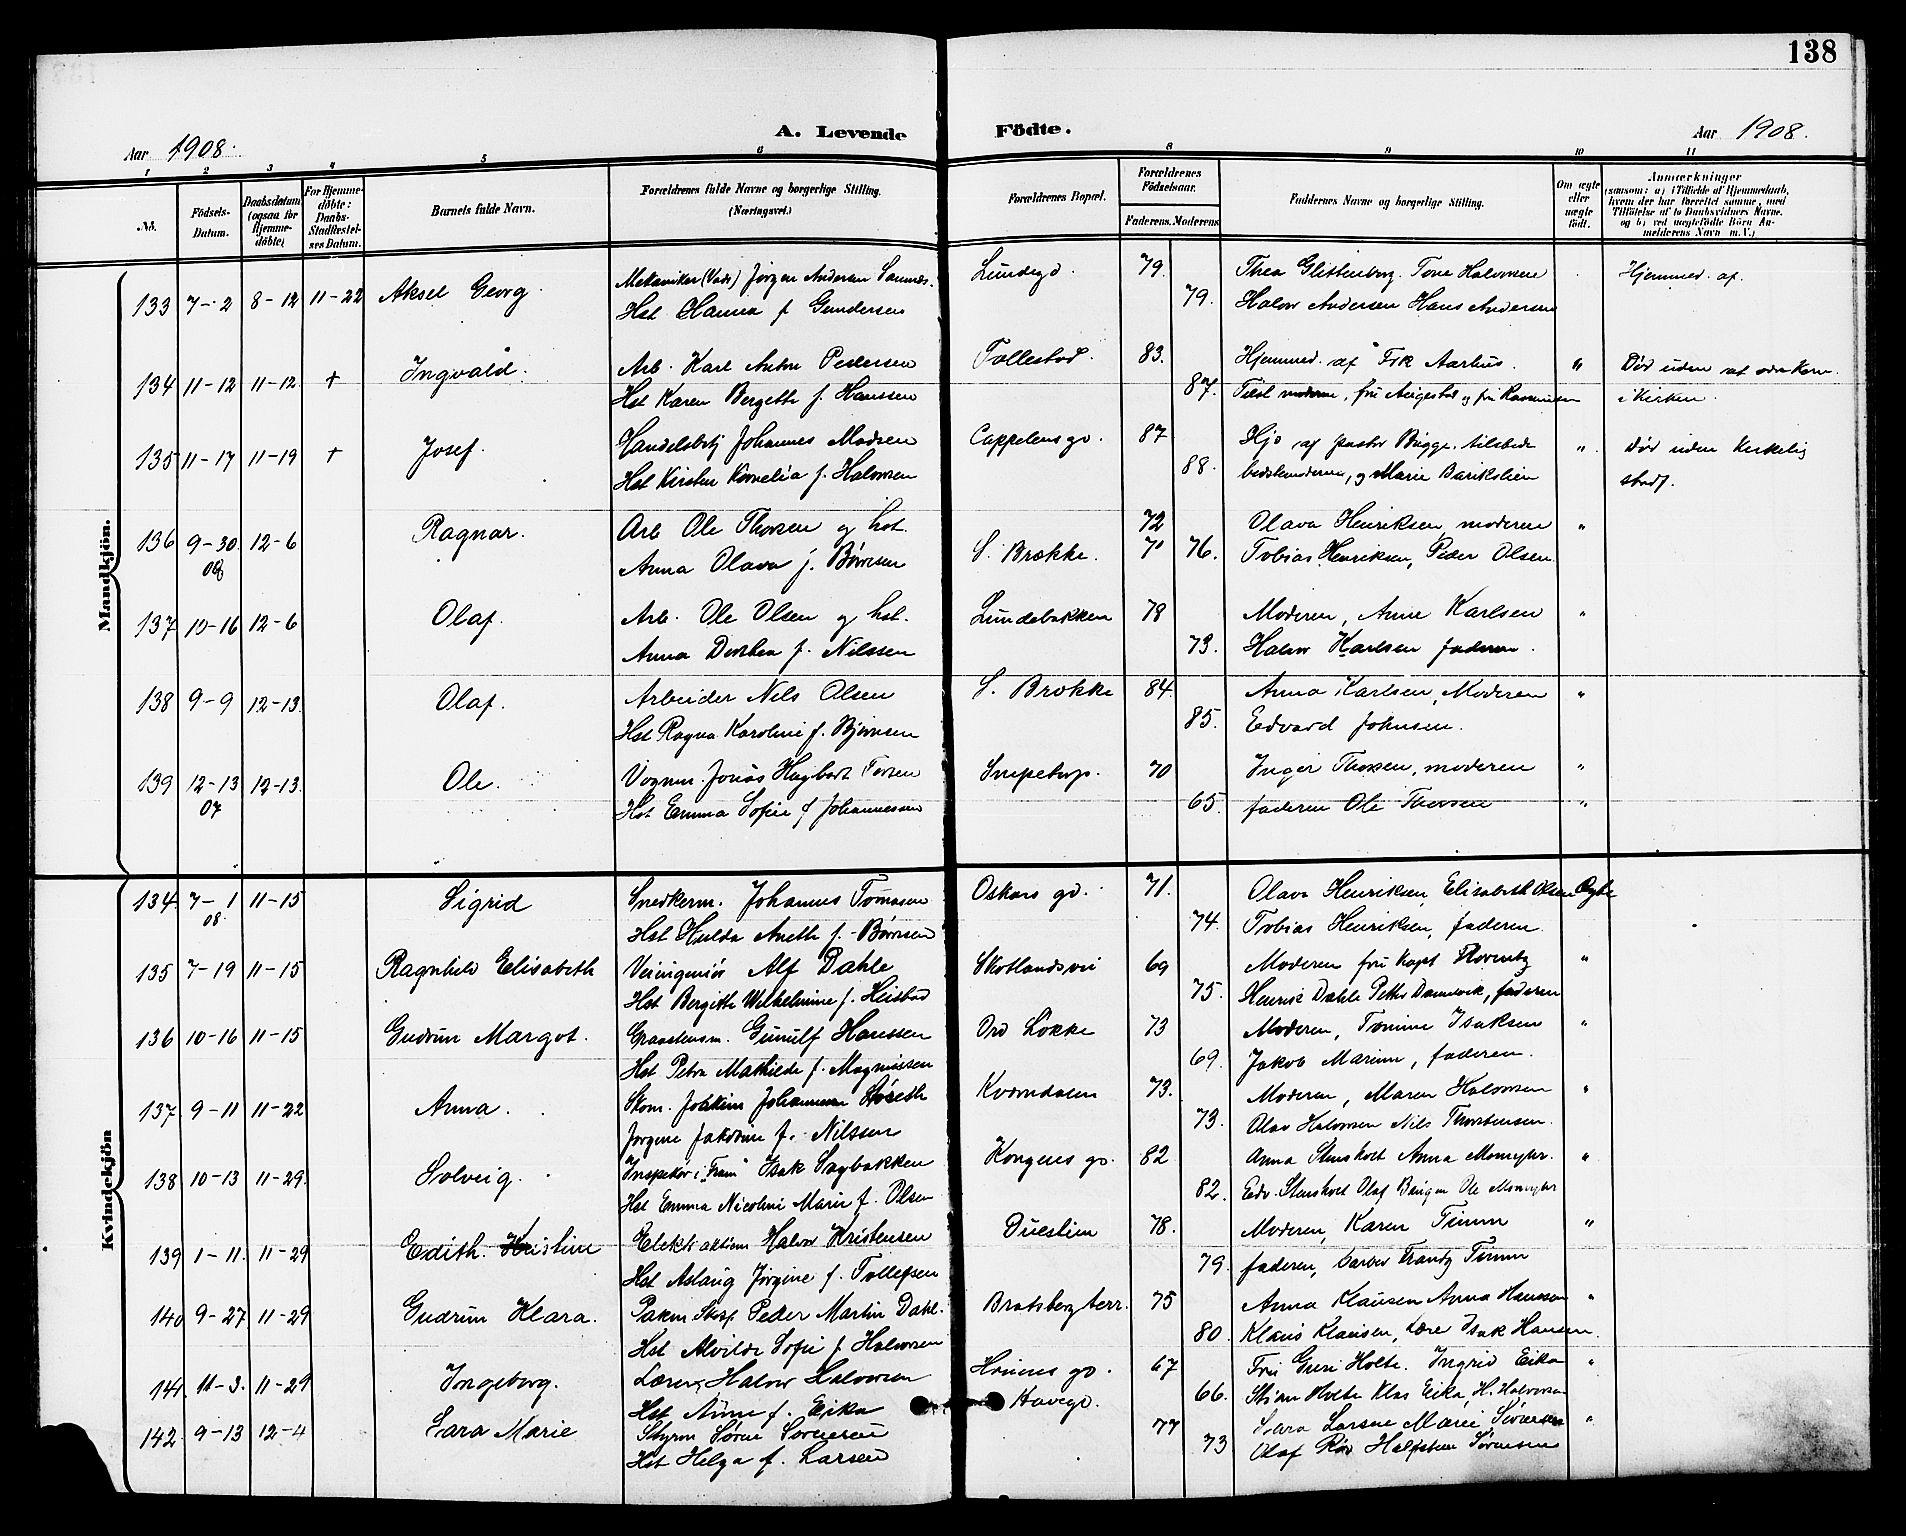 138
Aar 1908.
A. Levende Födte.
Aar 1908.
1 2 3 4 5 6 8 9 10 11
No.
Födsels-Datum.
Daabsdatum (ogsaa for Hjemmedöbte)
For Hjemmedöbte: Daabs-Stadfæstelses Datum.
Barnets fulde Navn.
Forældrenes fulde Navne og borgerlige Stilling. (Næringsvei.)
Forældrenes Bopæl.
Forældrenes Födselsaar.
Faderens. Moderens
Faddernes Navne og borgerlige Stilling.
Om ægte eller uægte födt.
Anmærkninger (saasom: a) i Tilfælde af Hjemmedaab, hvem der har forrettet samme, med Tilföielse af to Daabsvidners Navne, og b) ved uægtefödte Börn Anmelderens Navn m. V.)
Mandkjön.
133 7-2 8-12 11-22 Aksel Georg. Mekaniker Jørgen Andersen Lundegd. 79. Thea Glittenberg. Tone Halvorsen Hjemmed. af.
Hst Hanna f Gundersen 79. Halvor Andersen Hans Andersen
134 11-12 11-12 + Ingvald. Arb. Karl Anton Pedersen Follestad. 83. Hjemmed. af Frk Aarhus. " Død uden at
Hst Karen Bergette f. Hanssen 87. moderen, fru i Kirken.
135 11-17 11-19 + Josef. Handelsbetj Johannes Madsen Cappelensgd. 87 Hjd af pastor Bugge. tilstede " Død uden Kirkelig
Hst Kirsten Kornelia f. Halvorsen 88. bedstemoderen, og Marie stadf.
136 9-30 12-6 Ragnar. Arb Ole Thorsen og hst. 72 Olava Henriksen, moderen "
08 Anna Olava f. Børresen S. Brække. 71 76. Tobias Henriksen, Peder Olsen
137 10-16 12-6 Olaf. Arb. Ole Olsen og hst. Lundebakken 78 Moderen, Anne Karlsen "
Anna Dorthea f. Nilssen 73. Halvor Karlsen faderen.
138 9-9 12-13. Olaf. Arbeider Nils Olsen S. Brække 84. Anna Karlsen, Moderen "
Hst Ragna Karoline f. Bjørnsen 85. Edvard Johnsen.
139 12-13 12-13. Ole. Vognm. Jonas Hagbart Snipetorp. 70 Inger Thorsen, moderen "
07 Hst Emma Sofie f Johannessen 65. faderen Ole Thorsen "
Kvindekjön
134. 7-1 11-15 Sigrid Snedkerm. Johannes Tomasen Oskars gd. 71. Olava Henriksen, Elisabeth Olsen Ægte
08. Hst Hulda Aneth f. Børresen 74. Tobias Henriksen, faderen.
135 7-19 11-15 Ragnhild Elisabeth Veiingeniør Alf Dahle Skotlandsvei 69 Moderen fru Kapt "
Hst Bergithe Wilhelmine f. Heistad 75. Henrik Dahle faderen
136 10-16 11-15 Gudrun Margot. Gunulf Hanssen Løkke 73 Moderen, Isaksen "
Hst Petra Mathilde f. Magnussen 69. Jakob faderen.
137 9-11 11-22 Anna. Skom. Joakim Johannesen Kværndalen 73. Moderen, Maren Halvorsen "
Jørgine Jakobine f. Nilssen 73. Olav Halvorsen Nils Thorstensen.
138 10-13 11-29. Solveig. Inspektør i "Fram" Isak Sagbakken Kongens gd. 82 Anna Stensholt Anna "
Hst Emma Nicoline Marie f. Olsen 82. Edv. Stensholt Olaf Ole
139 1-11. 11-29 Edith. Kristine Halvor Kristensen Duestien 78. Moderen, Karen Timm "
Hst Aslaug Jørgine f. Tollefsen 79. faderen, Frantz Timm
140 9-27. 11-29 Gudrun Klara. Peder Martin Dahl. Bratsberg terr. 75 Anna Klausen Anna Hansen "
Hst Alvilde Sofie f Halvorsen 80. Klaus Klausen, Isak Hansen.
141. 11-3. 11-29 Ingeborg. Lærer Halvor Halvorsen gd. 67 Fru Guri Holte. Ingrid Eika "
Hst Anne f. Eika Havegd. 66. Holte Klas Eika, H. Halvorsen
142. 9-13 12-4 Sara Marie Styrm Søren Sørensen 77 Sara Larsen Marie Sørensen "
Hst Helga f. Larsen 73 Olaf Halfstein Sørensen